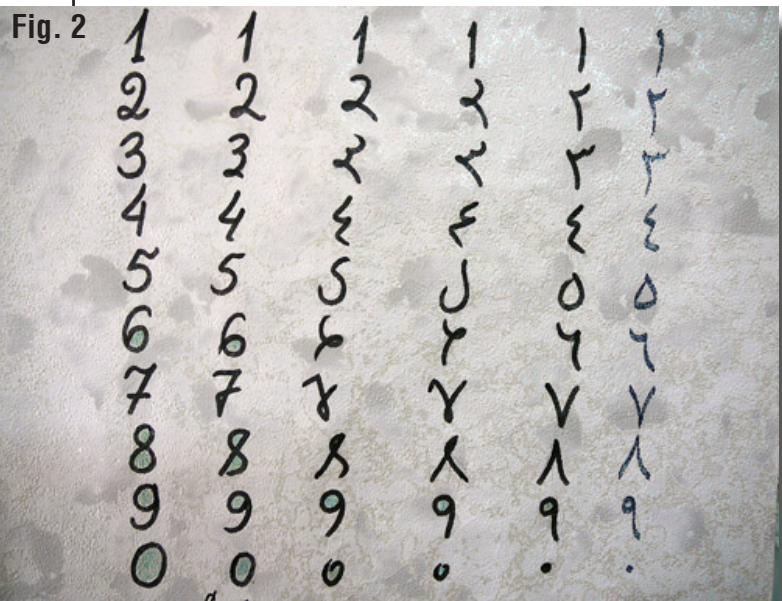 Fig. 2
1 1 1 1 ١ ١
2 2 2 ٢ ٢
3 3 ٣ ٣
4 4 ٤ ٤ ٤ ٤
5 5 5 ٥ ٥
6 6 ٦ ٦
7 7 ٧ ٧
8 8 ٨ ٨
9 9 9 9 ٩ ٩
0 0 0 0 ٠ ٠